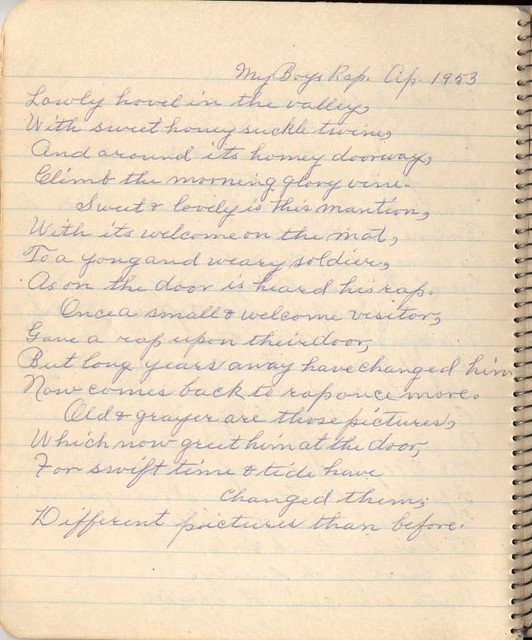 My Boys Rap. Ap. 1953
Lowly hovel in the valley,
With sweet honey suckle twine,
And around its homey doorway,
Climb the morning glory vine.
Sweet & lovely is this mantion,
With its welcome on the mat,
To a yong and weary soldier,
As on the door is heard his rap.
Once a small & welcome visitor,
Gave a rap upon their door,
But long years away have changed him
Now comes back to rap once more.
Old & grayer are those pictures,
Which now greet him at the door,
For swift time & tide have
changed them;
Different pictures than before.